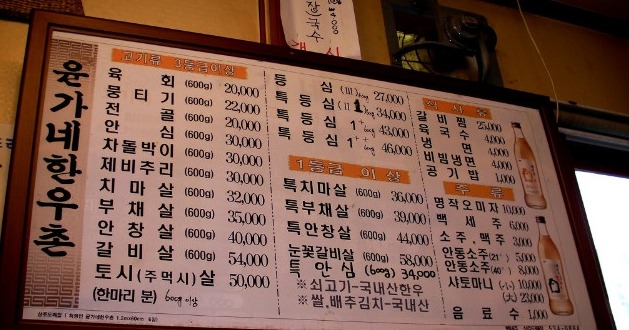 장국수
개시
윤가네한우촌
고기류 3등급이상
육회 (600g) 20,000
뭉티기 (600g) 22,000
전골 (600g) 20,000
안심 (600g) 30,000
차돌박이 (600g) 30,000
제비추리 (600g) 30,000
치마살 (600g) 32,000
부채살 (600g) 35,000
안창살 (600g) 40,000
갈비살 (600g) 54,000
토시(주먹시)살 50,000
(한마리 분) 600g 이상
등심 27,000
특등심 34,000
특등심 1+ 600g 43,000
특등심 1+ 600g 46,000
1등급 이상
특치마살 (600g) 36,000
특부채살 (600g) 39,000
특안창살 (600g) 44,000
눈꽃갈비살 (600g) 58,000
특안심 (600g) 34,000
※쇠고기-국내산한우
※쌀,배추김치-국내산
식사류
갈비찜 25,000
육국수 4,000
냉면 4,000
비빔냉면 4,000
공기밥 1,000
주류
명작오미자 10,000
백세주 6,000
소주,맥주 3,000
안동소주(21˚) 5,000
안동소주(40˚) 8,000
샤토마니(小) 10,000
(大) 23,000
음료수 1,000